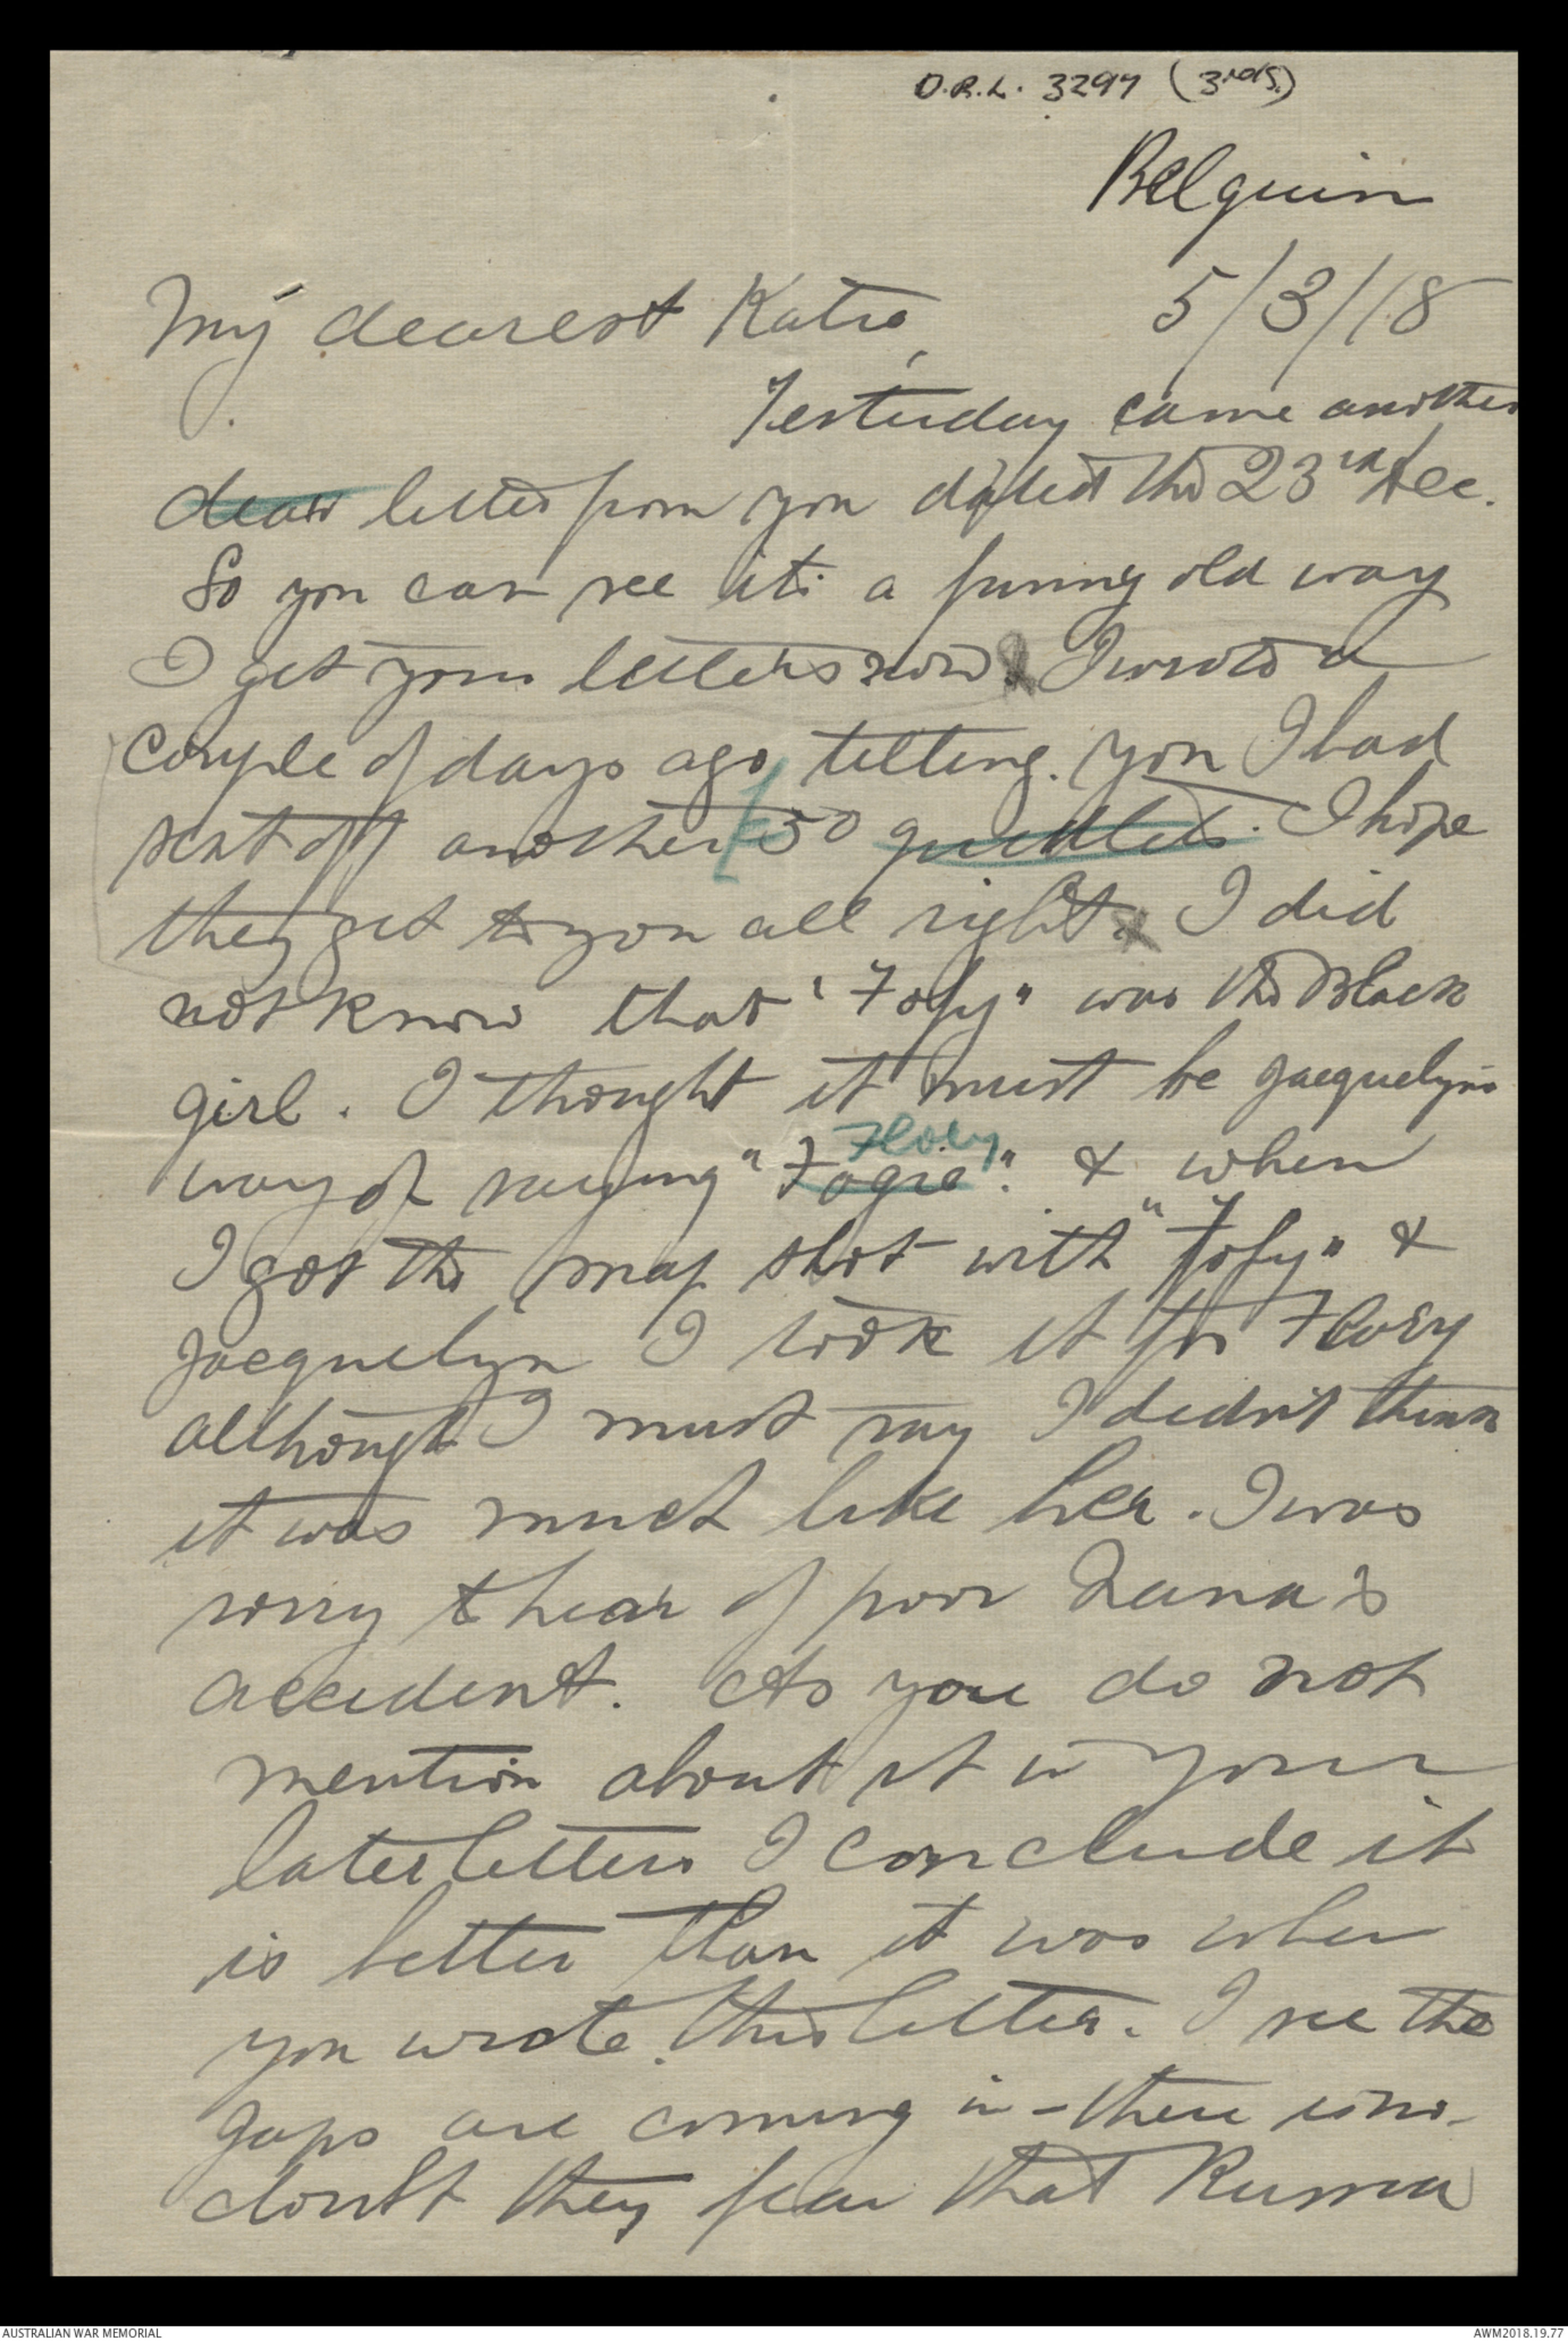 D.R.L. 3297 (3rd S.)
Belguim
5/3/18
My dearest Katie,
Yesterday came another
dear letter from you dated the 23rd Dec.
So you can see its a funny old way
I get your letters now. I wrote a
couple of days ago telling you I had
sent off another £50 quidlets. I hope
they get to you all right. I did
not know that "Fofy" was the Black
girl. I thought it must be Jacquelyns
Floey
way of saying "Fogie". & when
I got the snap shot with "Fofy" &
Jacquelyn I took it for Floey
although I must say I didn't think
it was much like her. I was
sorry to hear of poor Nana's
accident. As you do not
mention about it in your
later letters I conclude it
is better than it was when
you wrote this letter. I see the
Japs are coming in - there is no
doubt they fear that Russia
AUSTRALIAN WAR MEMORIAL
AWM2018.19.77